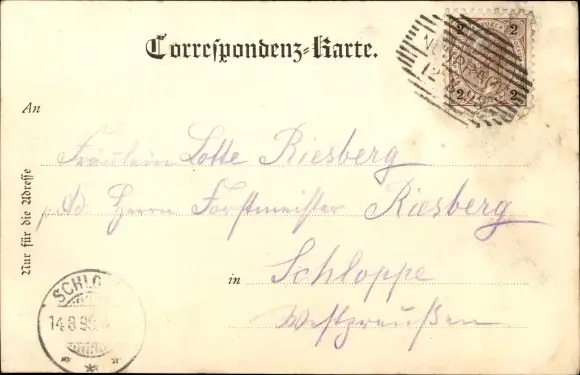 Correspondenz-Karte.
2 2
2 2
An
Fräulein Lotte Riesberg
Ad. Herrn Forstmeister Riesberg
in Schloppe
Westpreußen
Nur für die Adresse
SCHLO
14 8 98